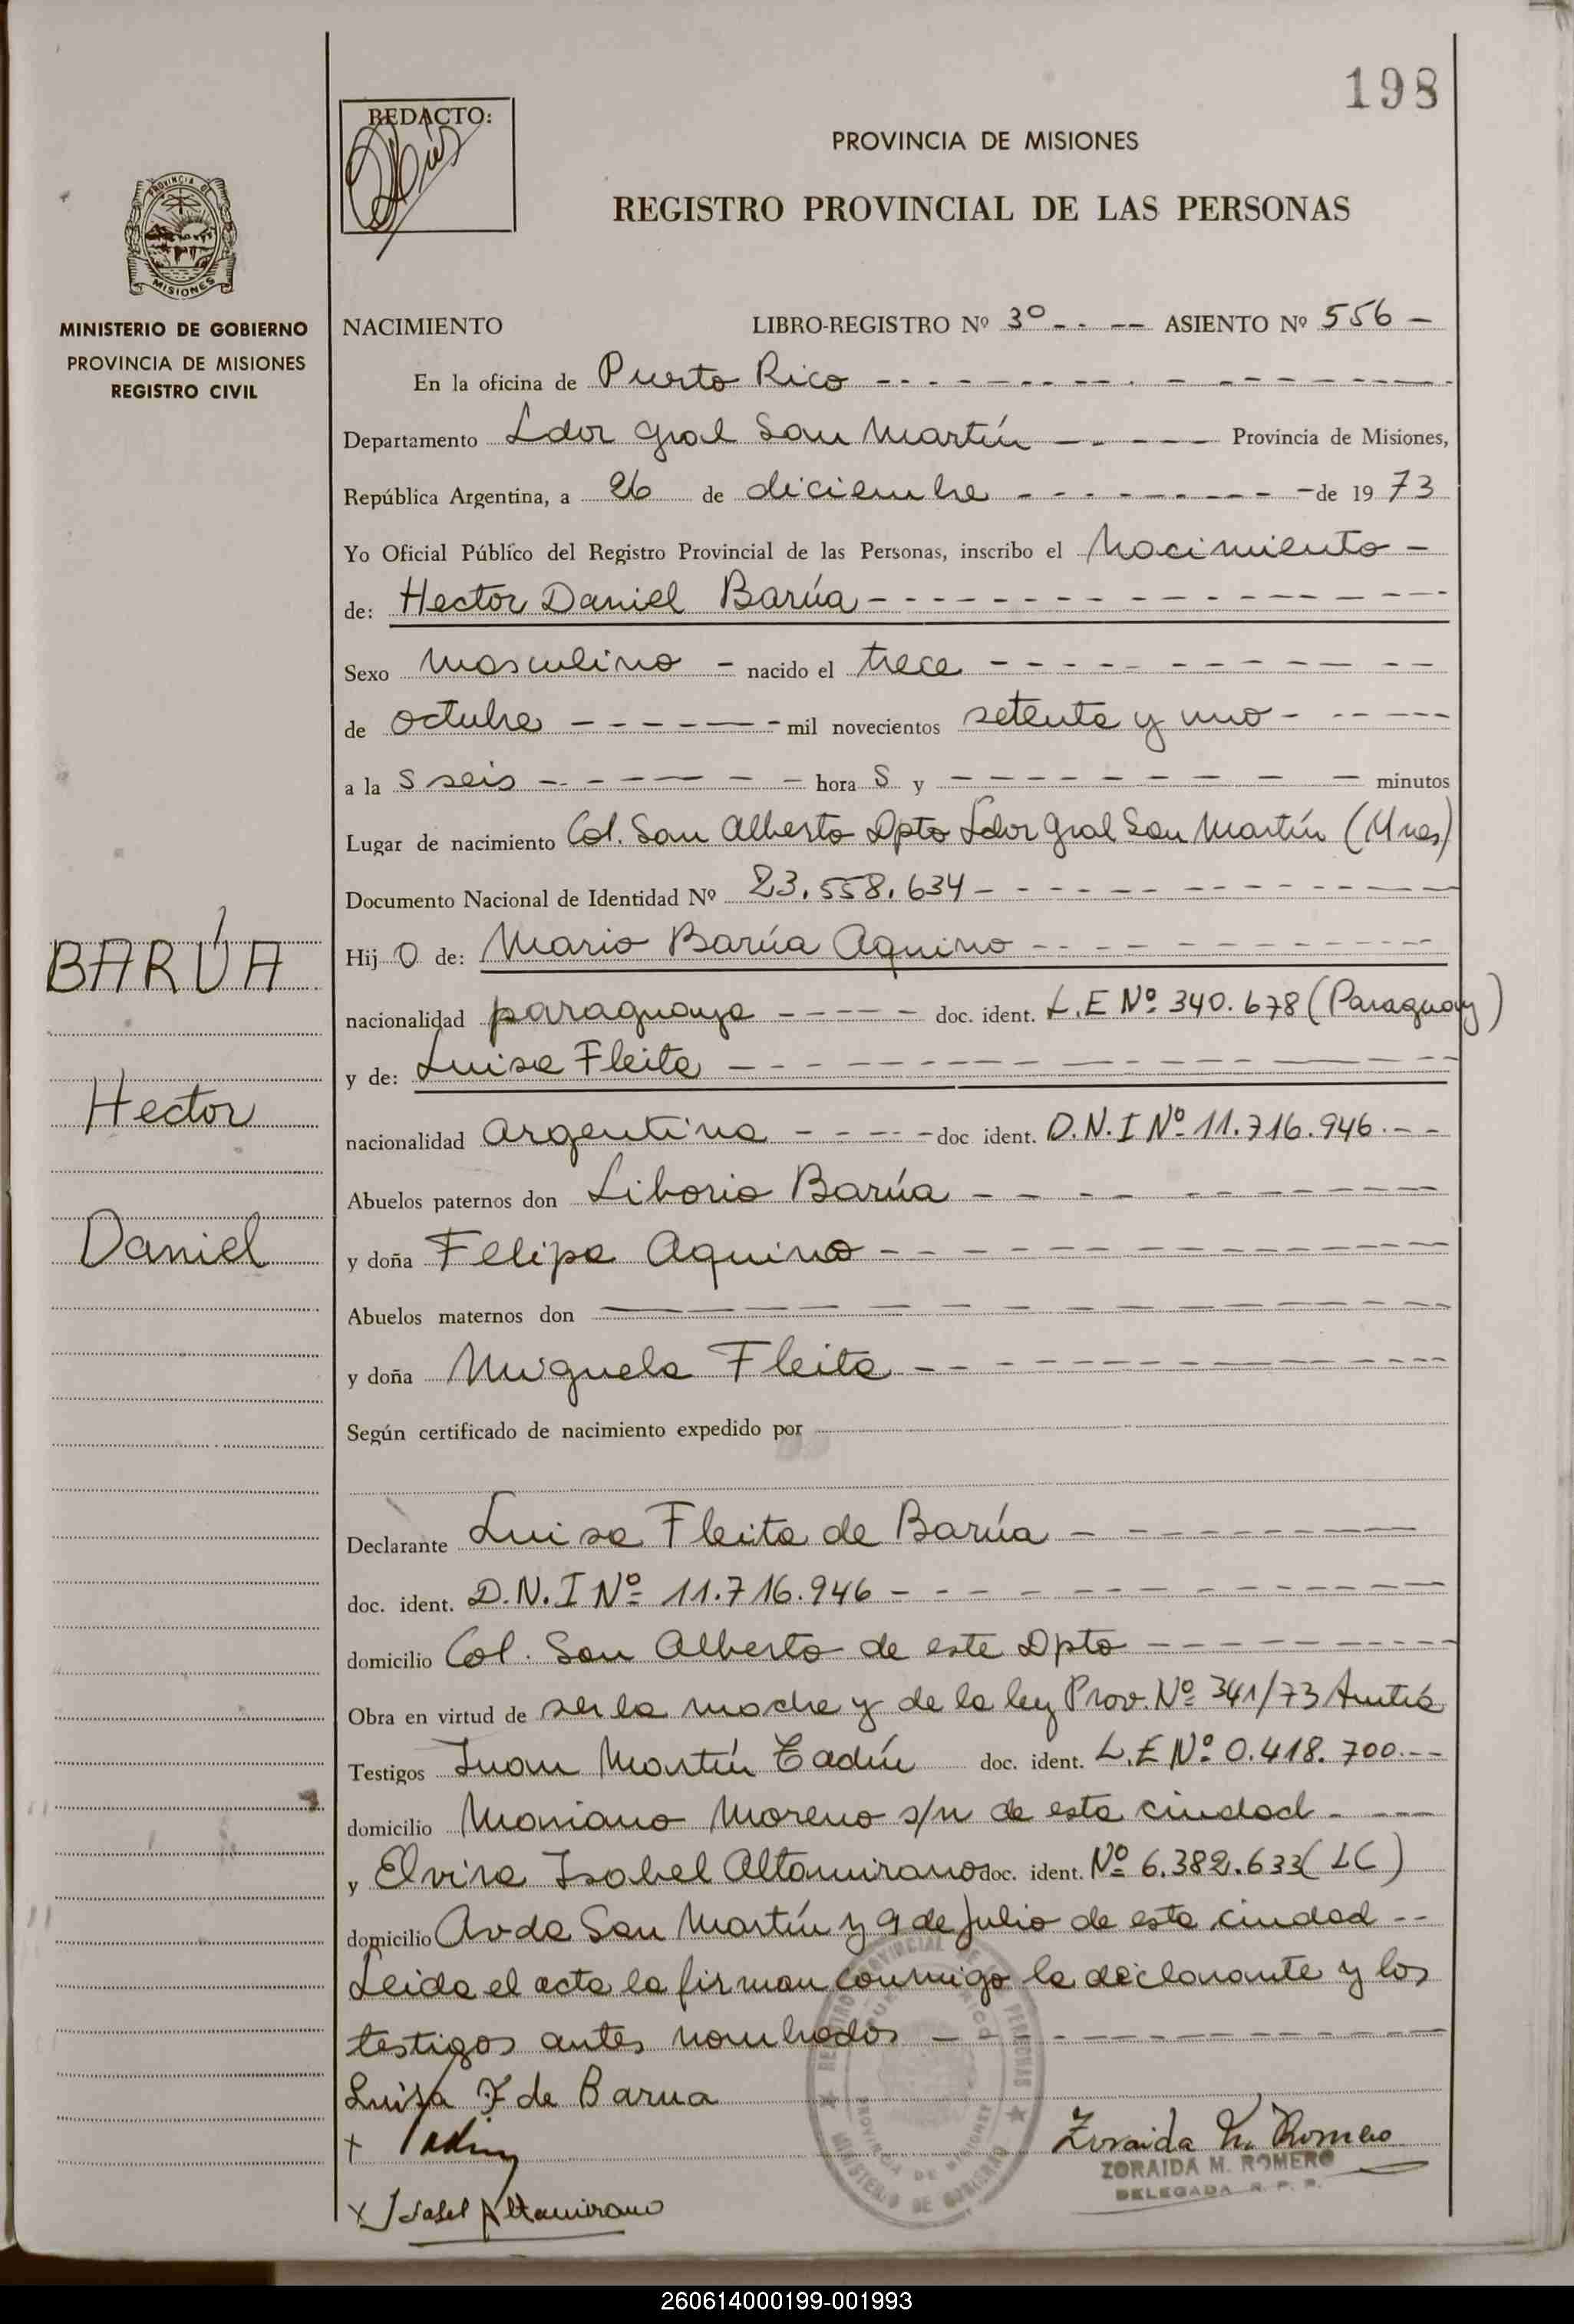 198
REDACTO:
PROVINCIA DE MISIONES
REGISTRO PROVINCIAL DE LAS PERSONAS
PROVINCIA DE
MISIONES
MINISTERIO DE GOBIERNO
PROVINCIA DE MISIONES
REGISTRO CIVIL
NACIMIENTO LIBRO-REGISTRO Nº 3º - - -- ASIENTO Nº 556 -
En la oficina de Puerto Rico
Departamento Ldor Gral San Martín Provincia de Misiones,
República Argentina, a 26 de diciembre de 19 73
Yo Oficial Público del Registro Provincial de las Personas, inscribo el Nacimiento -
de: Hector Daniel Barúa
Sexo Masculino - nacido el trece
de octubre mil novecientos setenta y uno
a la s seis hora s y minutos
Lugar de nacimiento Col. San Alberto Dpto Ldor Gral San Martín (Mnes)
Documento Nacional de Identidad Nº 23.558.634
BARÚA
Hij o de: Mario Barúa Aquino
nacionalidad paraguaya doc. ident. L.E Nº 340.678 (Paraguay)
y de: Luisa Fleita
Hector
nacionalidad Argentina doc ident. D.N.I Nº 11.716.946
Abuelos paternos don Liborio Barúa
Daniel
y doña Felipa Aquino
Abuelos maternos don
y doña Miguela Fleita
Según certificado de nacimiento expedido por
Declarante Luisa Fleita de Barúa
doc. ident. D.N.I Nº 11.716.946
domicilio Col. San Alberto de este Dpto
Obra en virtud de ser la madre y de la ley Prov. Nº 341/73
Testigos Juan Martín doc. ident. L.E Nº 0.418.700
domicilio Mariano Moreno s/n de esta ciudad
y Elvira Isabel Altamirano doc. ident. Nº 6.382.633 (LC)
domicilio Avda San Martín y 9 de Julio de esta ciudad
Leida el acta la firman conmigo la declarante y los
testigos antes nombrados
Luisa F de Barua
Zoraida M. Romero
ZORAIDA M. ROMERO
DELEGADA R. P. P.
x Isabel Altamirano
REGISTRO PROVINCIAL DE LAS PERSONAS
PUERTO RICO
PROVINCIA DE MISIONES
MINISTERIO DE GOBIERNO
260614000199-001993